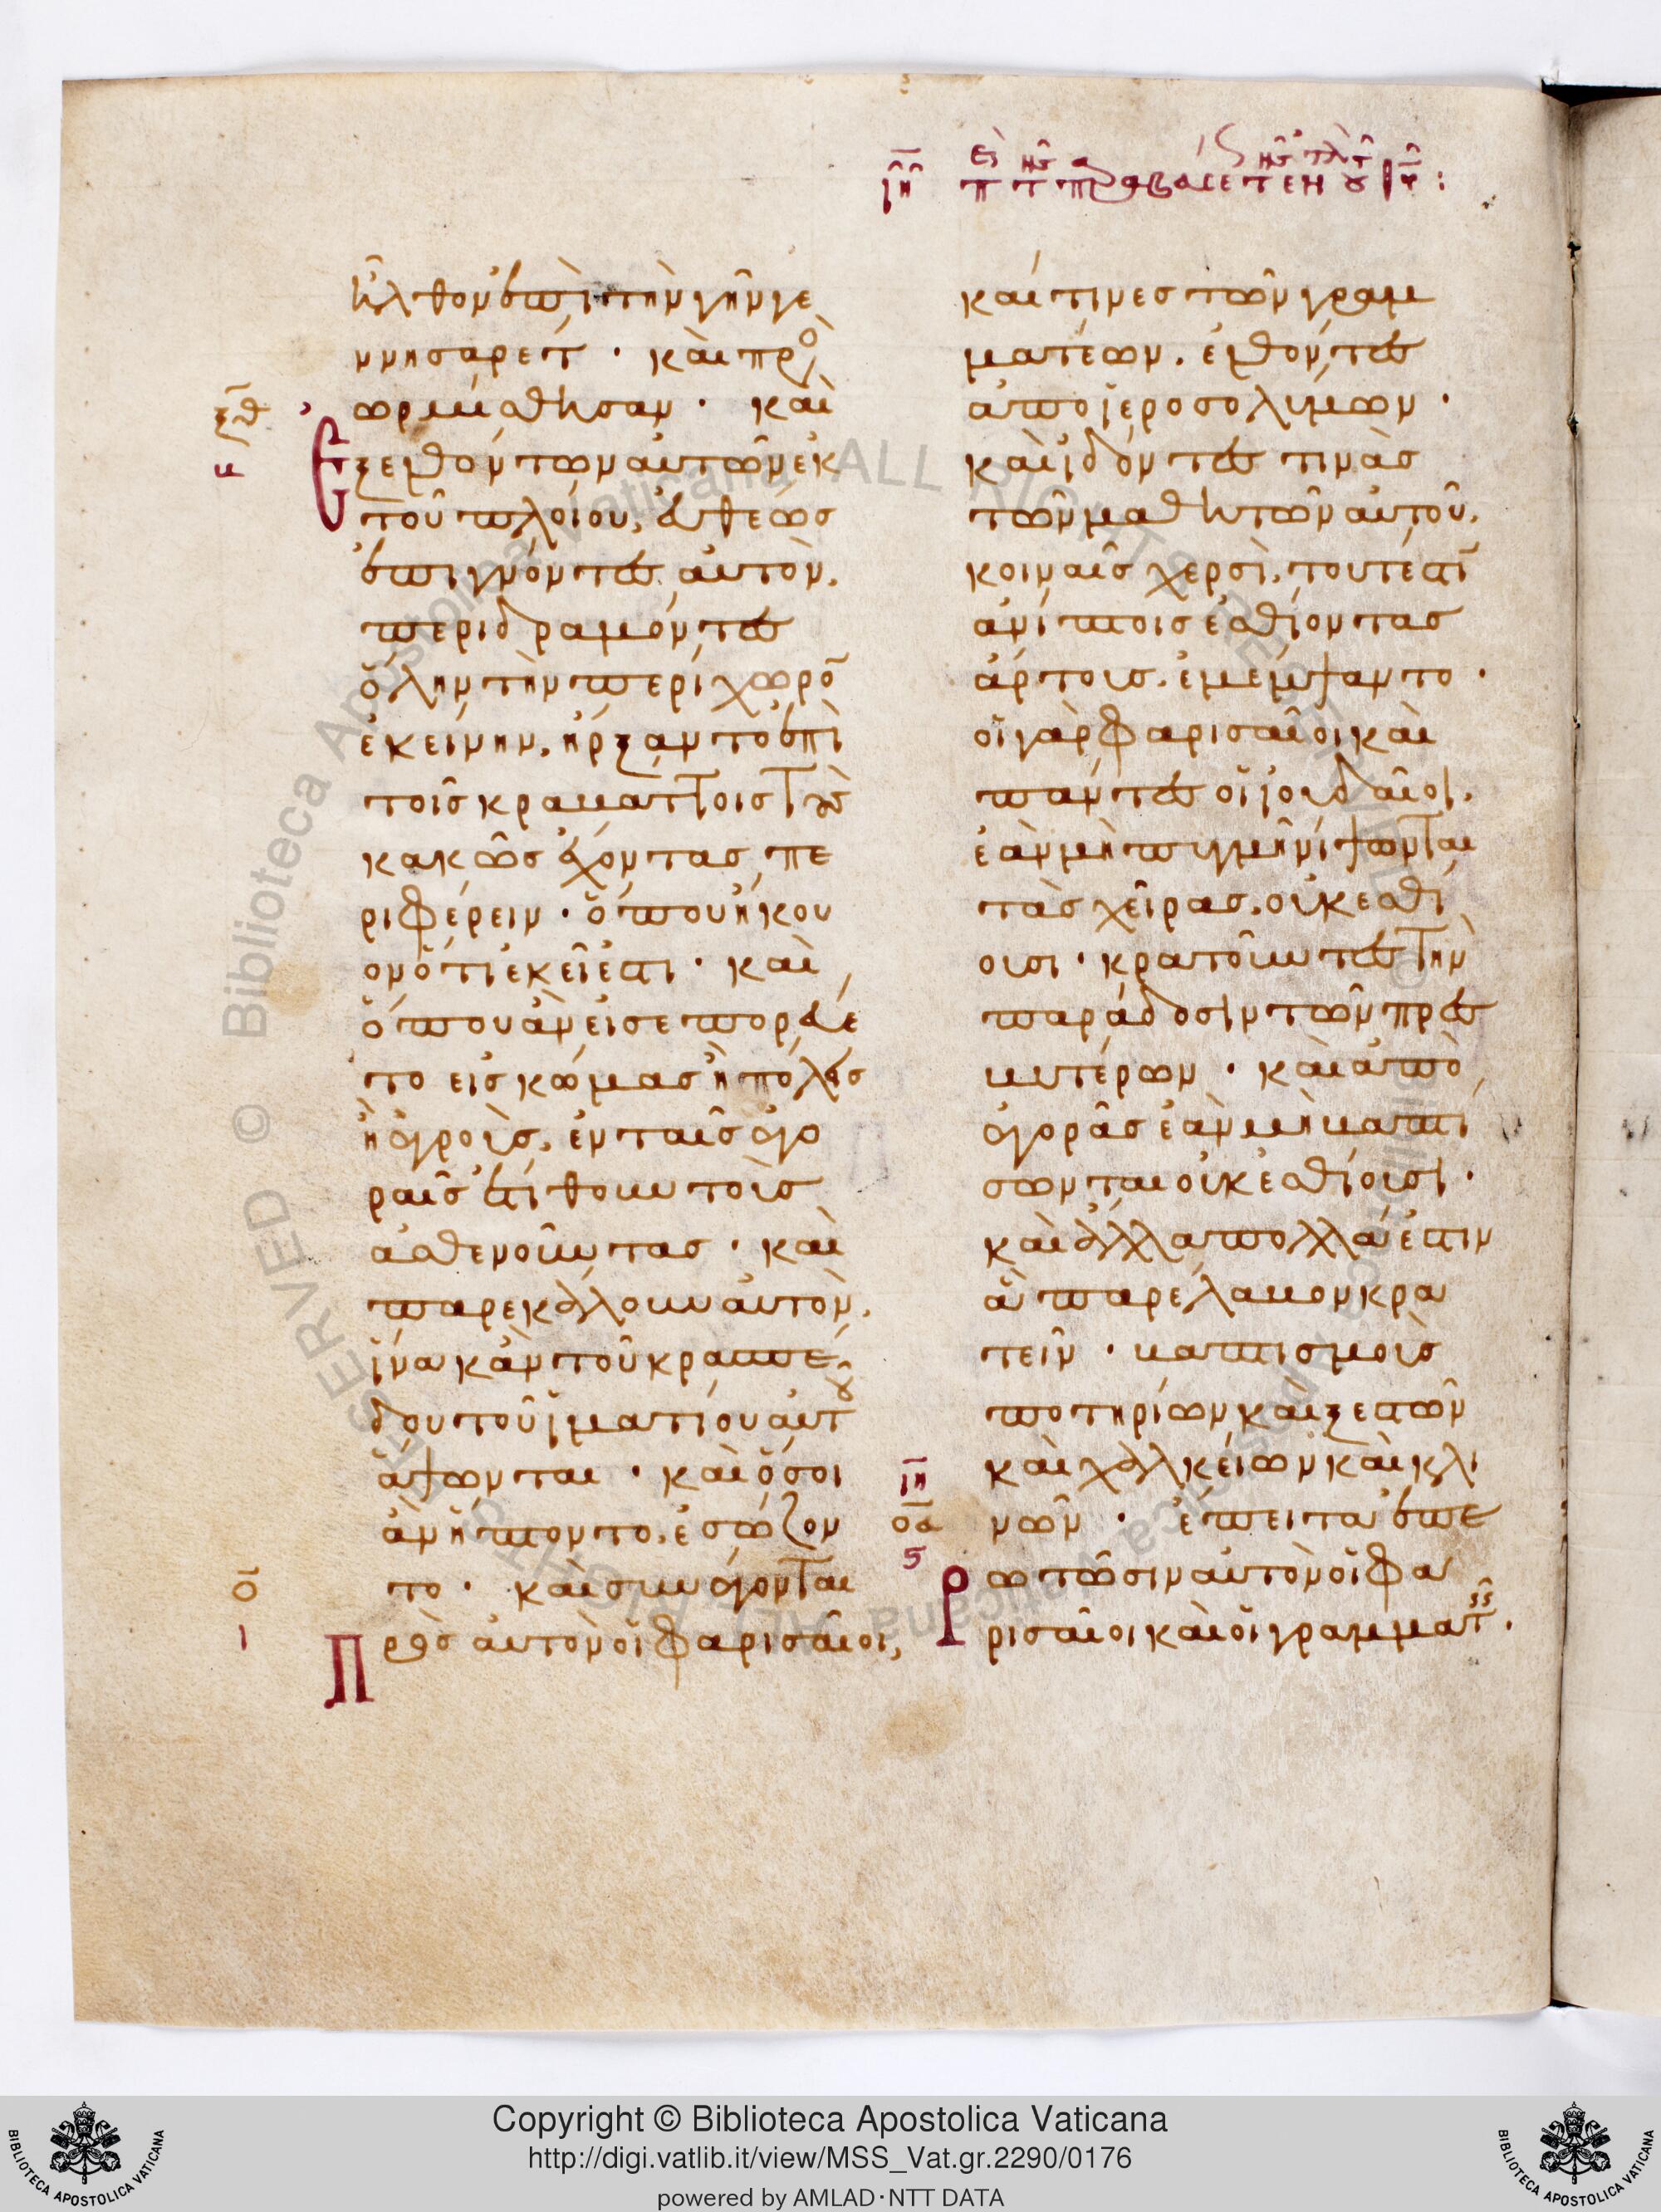 ιη
ἦλθον ἐπὶ τὴν γῆν γε
ννησαρέτ · καὶ προ
ωρμίσθησαν · καὶ
ξθ
Ἐξελθόντων αὐτῶν ἐκ
τοῦ πλοίου, εὐθέως
ἐπιγνόντες αὐτὸν,
περιδραμόντες
ὅλην τὴν περίχωρο̄
ἐκείνην, ἤρξαντο ἐπὶ
τοῖς κραβάττοις τοὺς
κακῶς ἔχοντας πε
ριφέρειν · ὅπου ἤκου
ον ὅτι ἐκεῖ ἐστι · καὶ
ὅπου ἂν εἰσεπορεύε
το εἰς κώμας ἢ πόλεις
ἢ ἀγροὺς, ἐν ταῖς ἀγο
ραῖς ἐτίθουν τοὺς
ἀσθενοῦντας · καὶ
παρεκάλουν αὐτὸν,
ἵνα κἂν τοῦ κρασπέ
δου τοῦ ἱματίου αὐτοῦ
ἅψωνται · καὶ ὅσοι
ἂν ἥπτοντο, ἐσώζον
ο
το · καὶ συνάγονται
ι
Πρὸς αὐτὸν οἱ φαρισαῖοι,
καί τινες τῶν γραμ
ματέων, ἐλθόντες
ἀπὸ ἱεροσολύμων ·
καὶ ἰδόντες τινὰς
τῶν μαθητῶν αὐτοῦ,
κοιναῖς χερσὶ, τουτέστι
ἀνίπτοις ἐσθίοντας
ἄρτους, ἐμέμψαντο ·
οἱ γὰρ φαρισαῖοι καὶ
πάντες οἱ ἰουδαῖοι,
ἐὰν μὴ πυγμῇ νίψωνται
τὰς χεῖρας, οὐκ ἐσθί
ουσι · κρατοῦντες τὴν
παράδοσιν τῶν πρεσ
βυτέρων · καὶ ἀπὸ
ἀγορᾶς ἐὰν μὴ βαπτί
σωνται οὐκ ἐσθίουσι ·
καὶ ἄλλα πολλά ἐστιν
ἃ παρέλαβον κρα
τεῖν · βαπτισμοὺς
ποτηρίων καὶ ξεστῶν
καὶ χαλκείων καὶ κλι
ιη
οα
νῶν · ἔπειτα ἐπε
ς
Ρωτῶσιν αὐτὸν οἱ φα
ρισαῖοι καὶ οἱ γραμματεῖς ·
Copyright © Biblioteca Apostolica Vaticana
http://digi.vatlib.it/view/MSS_Vat.gr.2290/0176
powered by AMLAD·NTT DATA
BIBLIOTECA APOSTOLICA VATICANA
BIBLIOTECA APOSTOLICA VATICANA